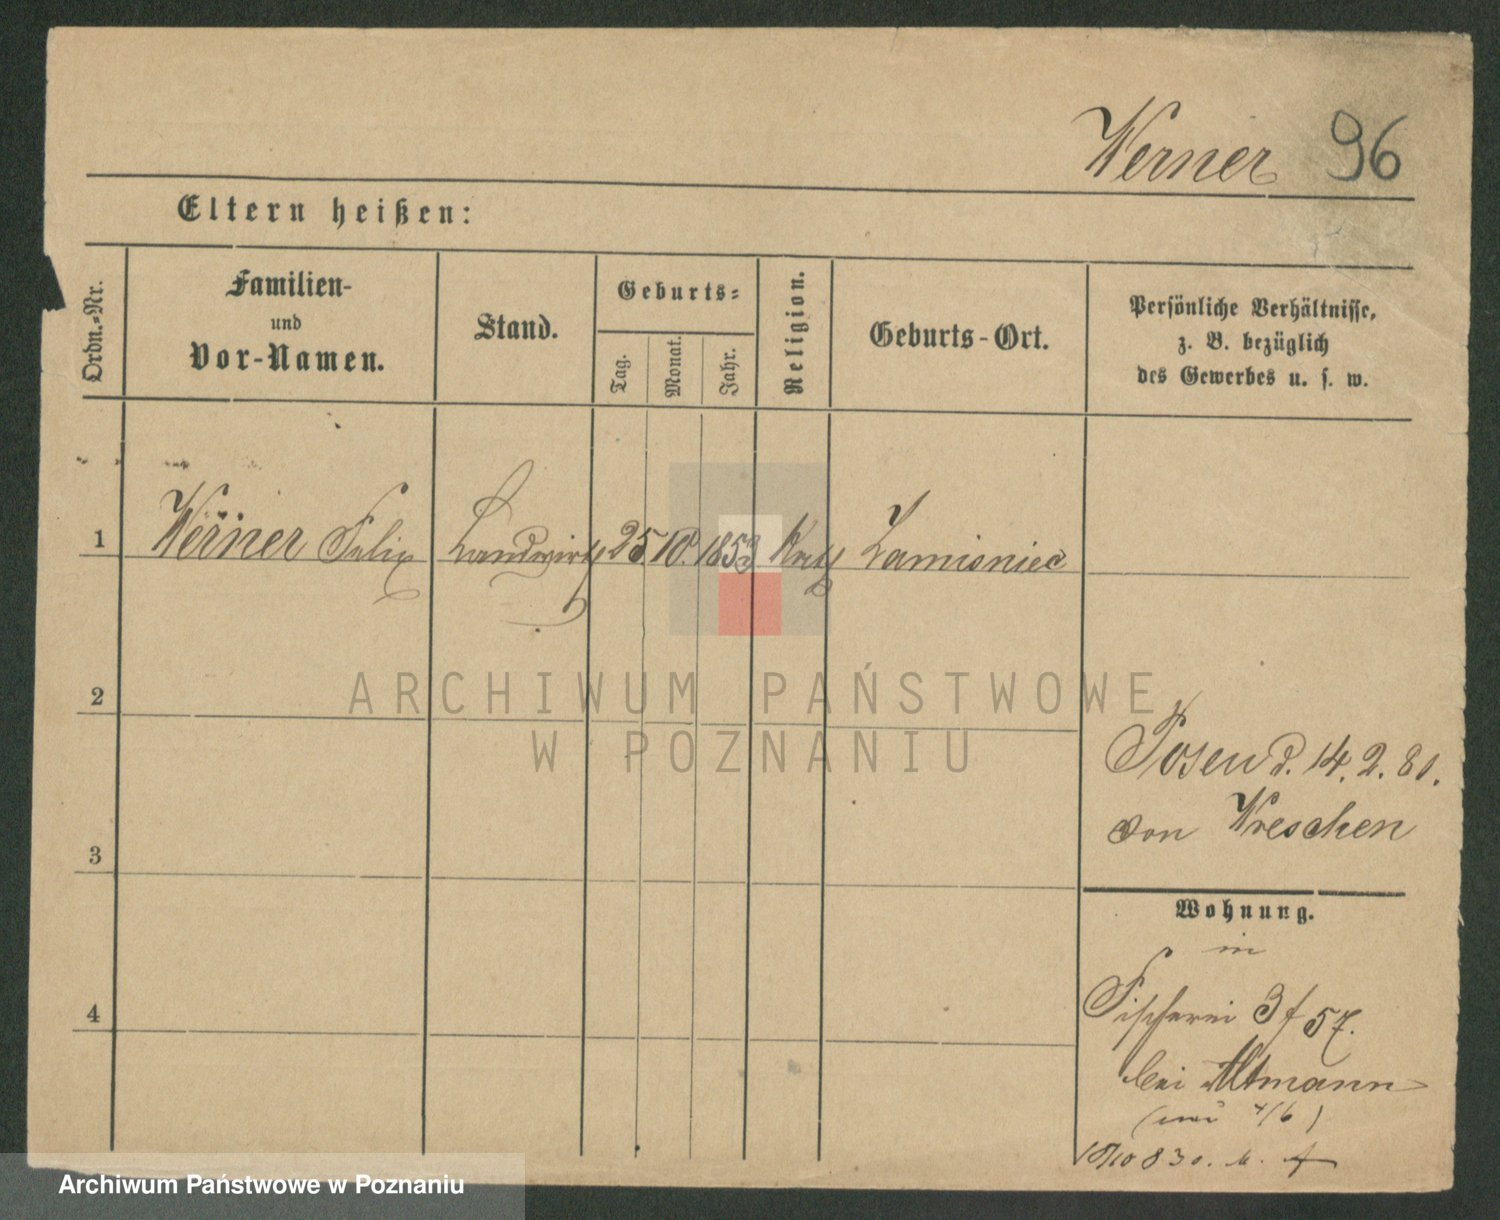 Werner 96
Eltern heißen:
Ordn.-Nr.
Familien-
und
Vor-Namen.
Stand.
Geburts-
Tag.
Monat.
Jahr.
Religion.
Geburts-Ort.
Persönliche Verhältnisse,
z. B. bezüglich
des Gewerbes u. s. w.
1 Werner Felix Landwirth 25 10. 1853 Kath Lamisniec
2
3
4
Posen d. 14. 2. 80.
von Wreschen
Wohnung.
in
Fischerei 3 f 57.
bei Altmann
ARCHIWUM PAŃSTWOWE
W POZNANIU
Archiwum Państwowe w Poznaniu